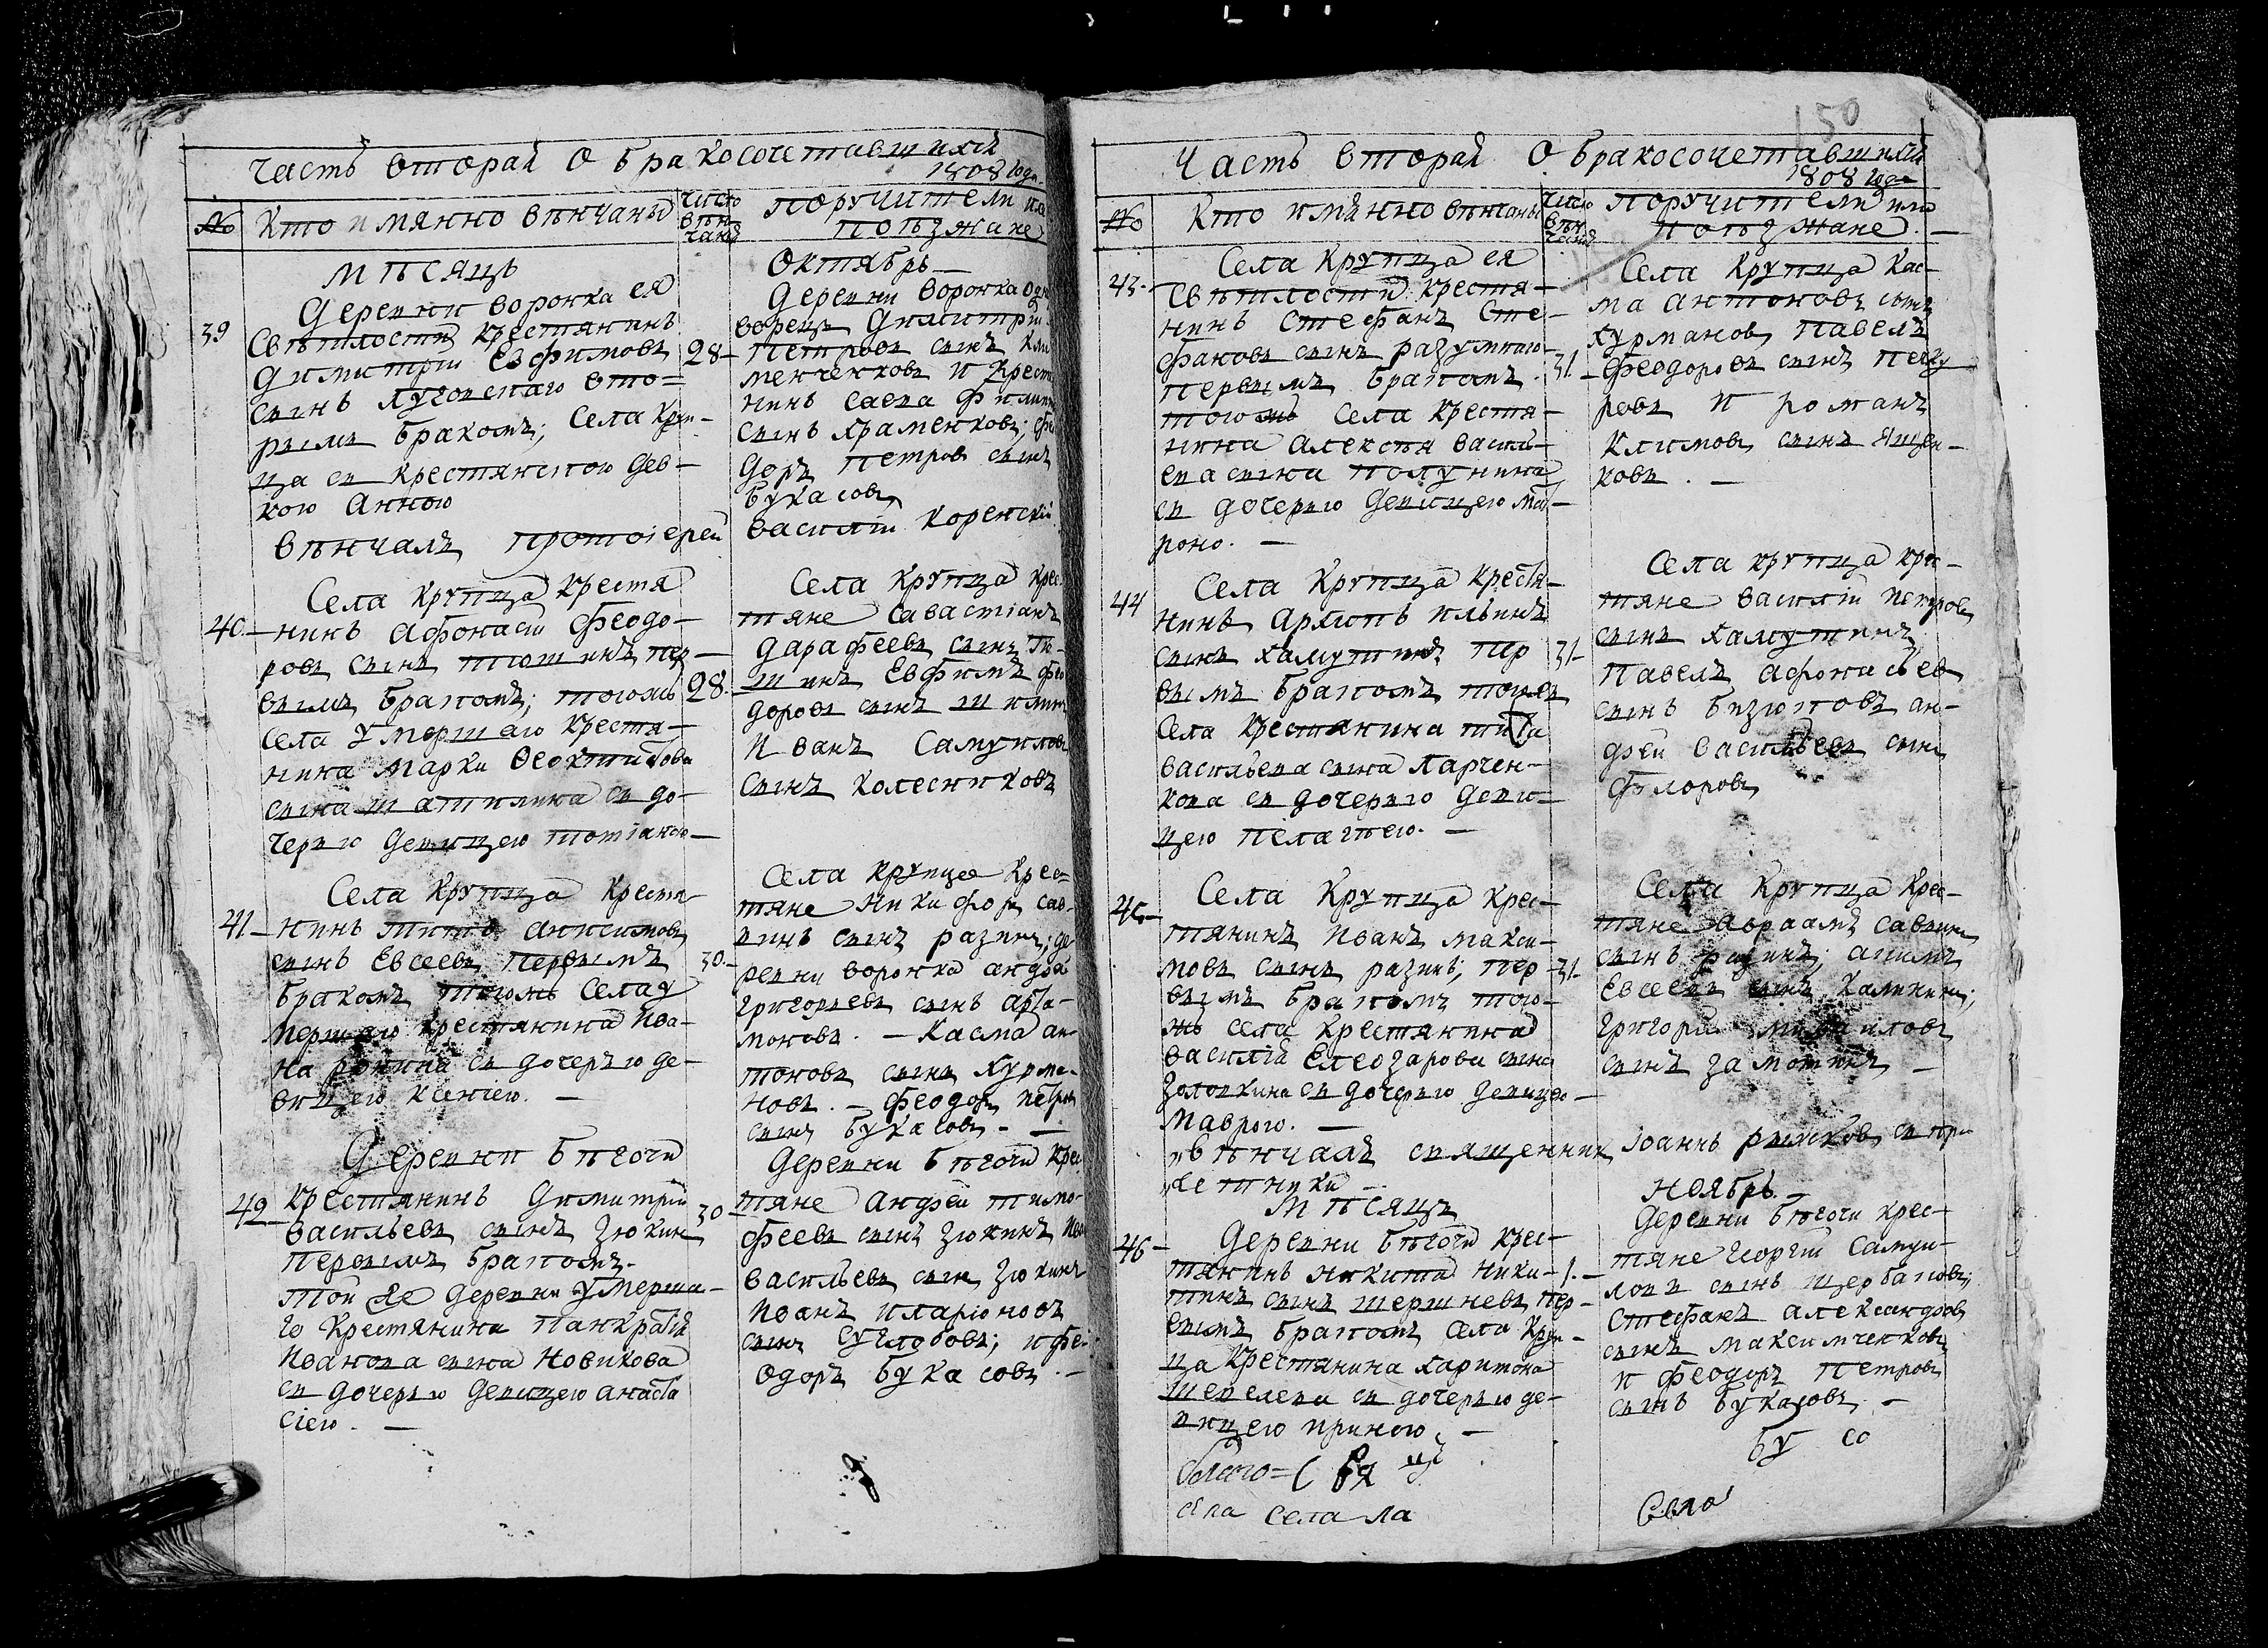 Часть вторая о бракосочетавшихся
1808 года
№
Кто имянно венчаны
число
вѣн
чанія
поручители или
поѣзжане
Мѣсяцъ
Октябрь
39
Деревни Воронка ея
Свѣтлости крестянинъ
Димитрій Евфимовъ
28
сынъ Луговскаго вто=
рымъ бракомъ; Села Кру-
пца съ крестянскою дев-
кою Анною
Деревни Воронка одно
ворецъ Димитрій
Петровъ сынъ Кли
менченковъ и крестя
нинъ Савва Филипп
сынъ Храменковъ; Фео
доръ Петровъ сынъ
Букасовъ
Вѣнчалъ протоіерей
Василій Коренскій
40
Села Крупца крестя
нинъ Афонасій Феодо-
ровъ сынъ Тютинъ пер-
вымъ бракомъ; тогожъ
28
села умершаго крестя-
нина Марки Феоктистова
сына Шатилина съ до-
черью девицею Тотіаною
Села Крупца крес
тяне Савастіанъ
Дарафеевъ сынъ Тю-
шинъ Евфимъ Фео
доровъ сынъ
Иванъ Самуиловъ
сынъ Колесниковъ
41
Села Крупца крестя
нинъ Титъ Анисимовъ
сынъ Евсеевъ первымъ
30
бракомъ тогожъ села у
мершаго крестянина Ива-
на Ронина съ дочерью де-
вицею Ксеніею.
Села Крупца крес=
тяне Никифоръ Сав-
винъ сынъ Разинъ; де
ревни Воронка Андрей
Григорьевъ сынъ Арта-
моновъ. - Касма Ан-
тоновъ сынъ Курма-
новъ. - Феодоръ Петров
сынъ Букасовъ -
42
Деревни Бѣгочи
крестянинъ Димитрій
Васильевъ сынъ Зюкинъ
30
первымъ бракомъ.
той же деревни умерша-
го крестянина Панкратія
Иванова сына Новикова
съ дочерью девицею Анаста
сіею.
Деревни Бѣгочи крес
тяне Андрей Тимо-
феевъ сынъ Зюкинъ Ив
Васильевъ сын Зюкинъ
Иванъ Иларіоновъ
сынъ Суглобовъ; и Фе-
одоръ Букасовъ.
150
Часть вторая о бракосочетавшихся
1808 года
№
Кто имянно вѣнчаны
число
вѣн
чанія
поручители или
поѣзжане
43
Села Крупца ея
Свѣтлости крестя-
нинъ Стефанъ Сте-
фановъ сынъ Разумнаго
31
первымъ бракомъ.
тогожъ села крестя-
нина Алексѣя Василь-
ева сына Полунина
съ дочерью девицею Мат-
роно.
Села Крупца Кас-
ма Антоновъ сынъ
Курмановъ, Павелъ
Феодоровъ сынъ
ровъ и Романъ
Климовъ сынъ Ящен-
ковъ.
44
Села Крупца крестя-
нинъ Архипъ Ильинъ
сынъ Камутинъ пер
31
вымъ бракомъ тогожъ
села крестянина Тита
Васильева сына Ларчен-
кова съ дочерью деви-
цею Пелагѣею.
Села Крупца крес-
тяне Василій Петровъ
сынъ Камутинъ
Павелъ Афонасьев
сынъ Бизюковъ Ан-
дрей Васильевъ сынъ
Фълоровъ
45
Села Крупца крес-
тянинъ Иванъ Макси-
мовъ сынъ Разинъ; пер
31
вымъ бракомъ того-
жъ села крестянина
Василія Елеозарова сына
Золоткина съ дочерью девицею
Маврою.
Села Крупца крес-
тяне Авраамъ Саввинъ
сынъ Разинъ; Акимъ
Евсеевъ сынъ Калинин;
Григорій Михаиловъ
сынъ Замотинъ
вѣнчалъ священникъ Іоаннъ Рыжковъ съ при
четники
Мѣсяцъ
Ноябрь
46
Деревни Бѣгочи крес-
тянинъ Никита Ники-
1.
тинъ сынъ Шершневъ пер-
вымъ бракомъ села Кру-
пца крестянина Харитона
Шепелева съ дочерью де-
вицею Ириною
Деревни Бѣгочи крес-
тяне Георгій Самуи-
ловъ сынъ Щербаковъ;
Стефанъ Александров
сынъ Максимченковъ
и Феодоръ Петровъ
сынъ Букасовъ
бу со
села ла
Село